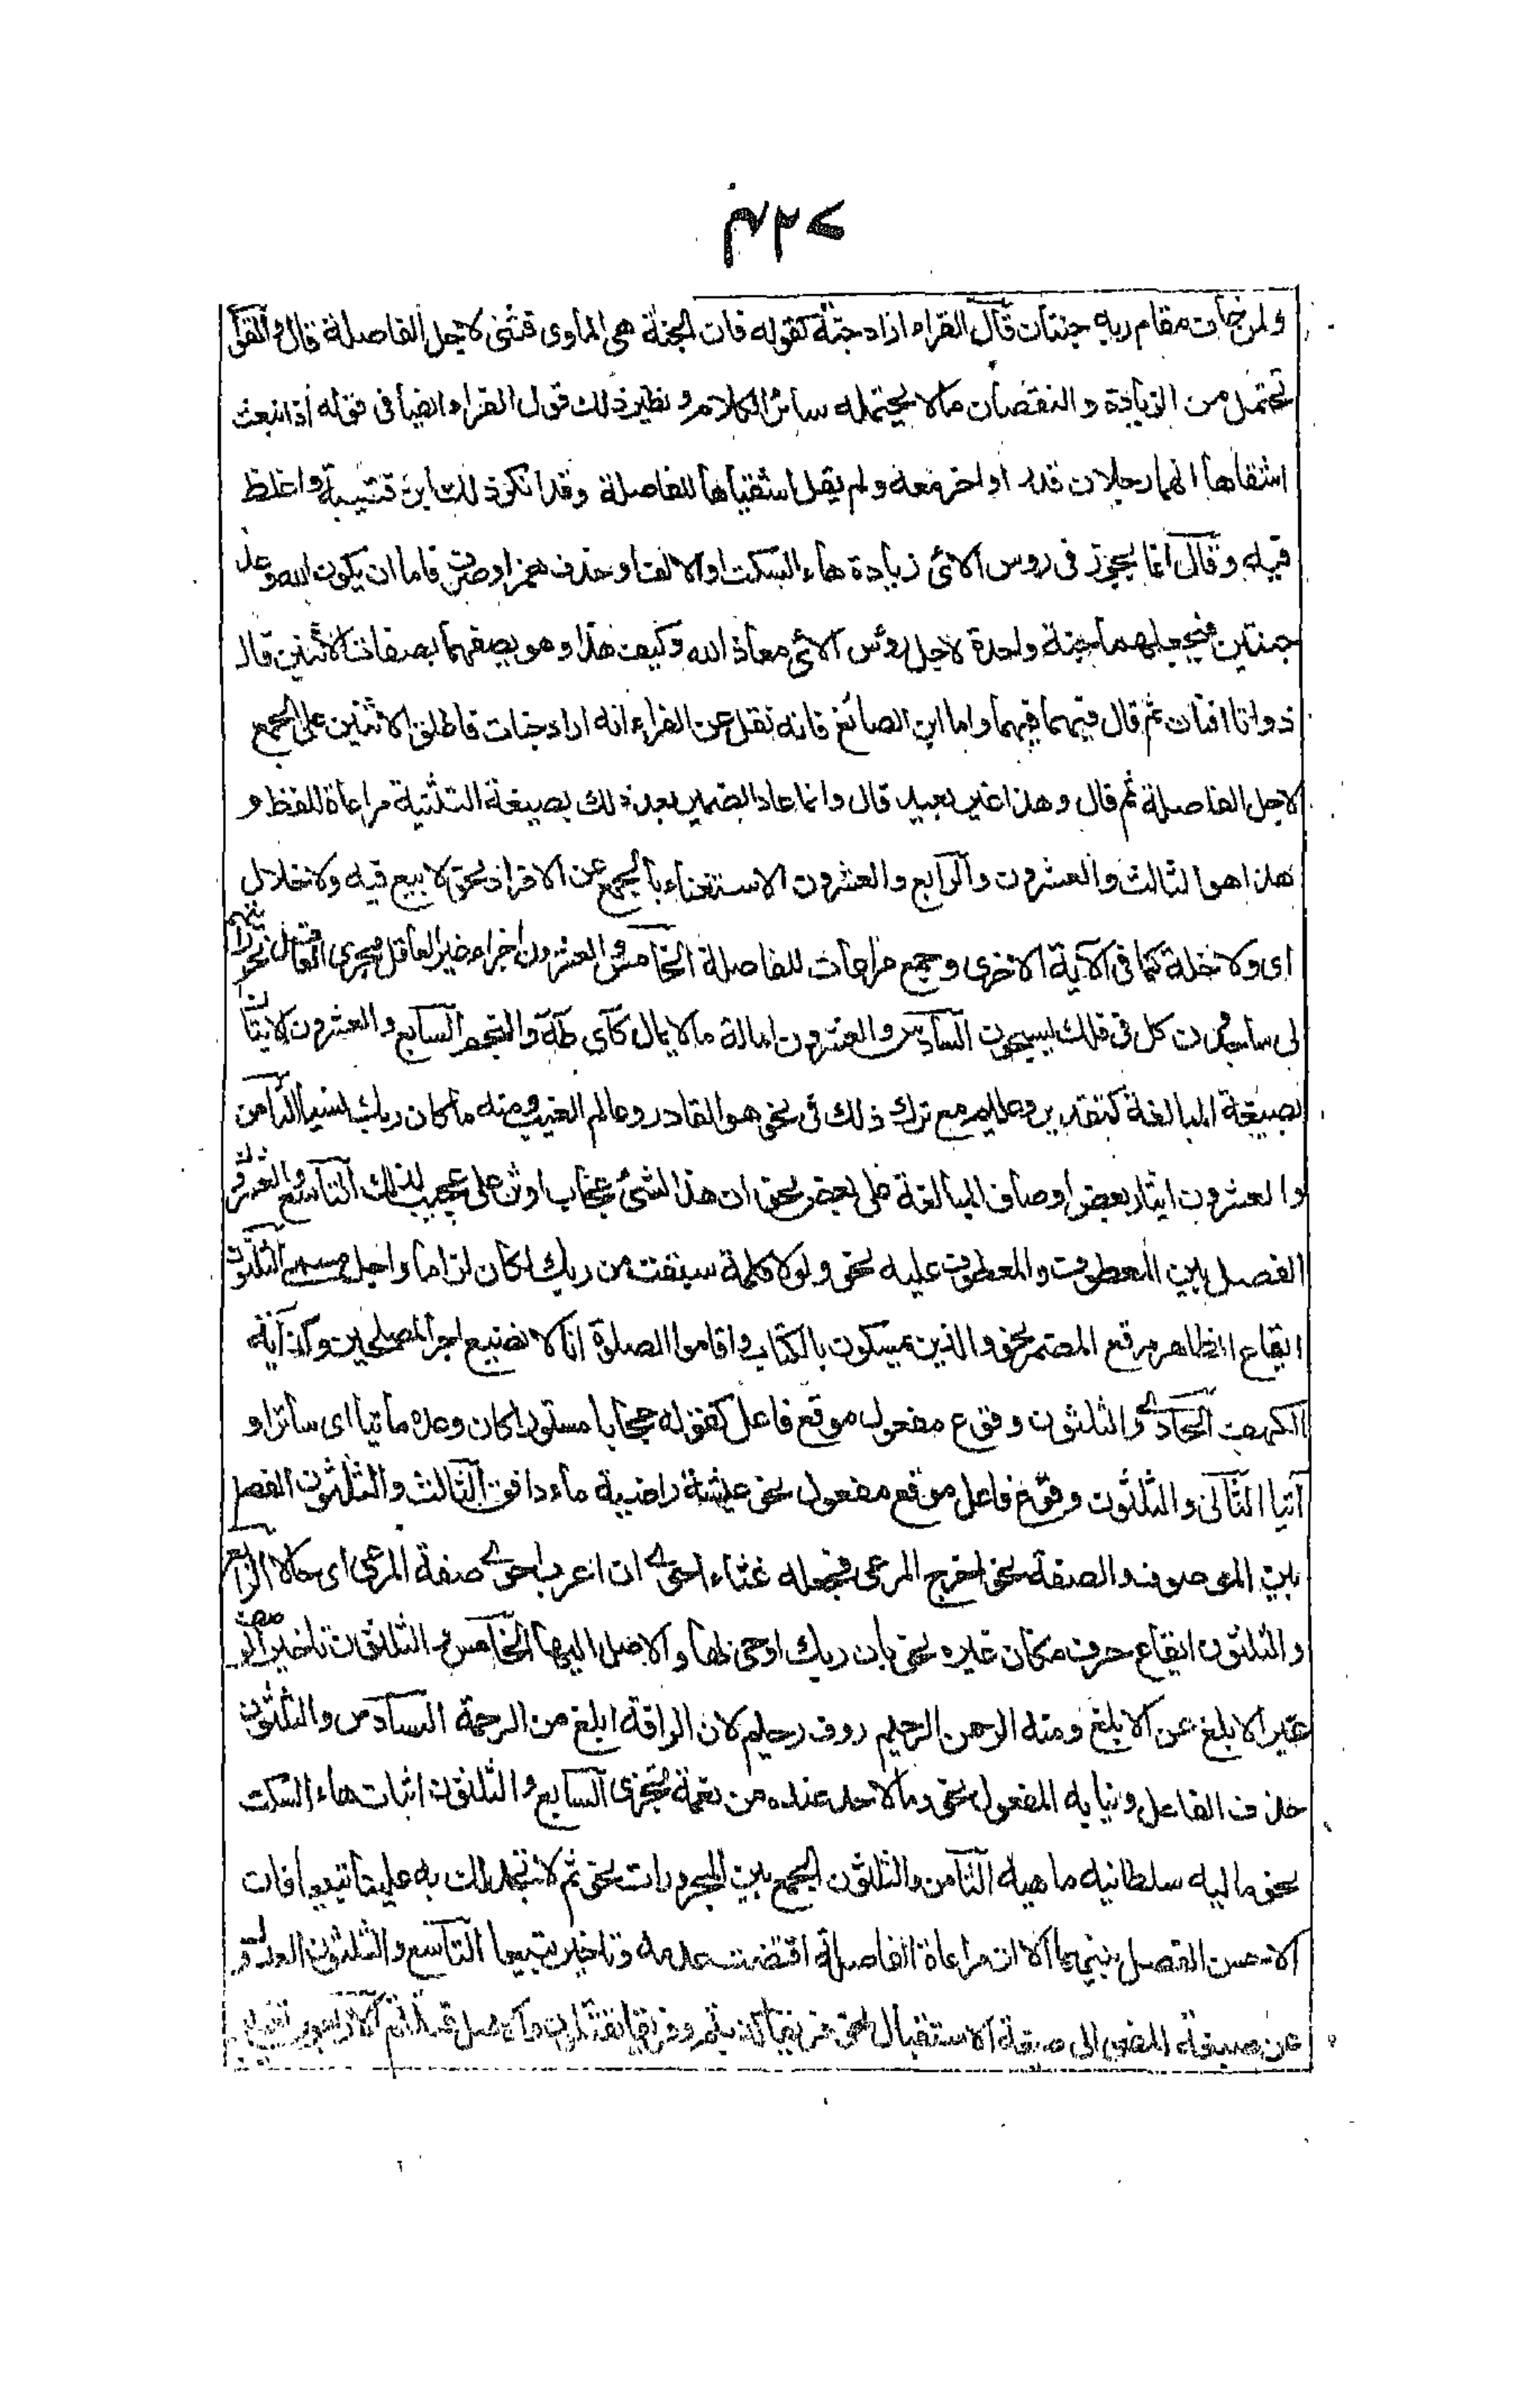 ٤٢٧
ولمن خاف مقام ربه جنتان قال الفراء اراد جنة كقوله فان الجنة هى الماوى فثنى لاجل الفاصلة قال والقوا
تحتمل من الزيادة والنقصان مالا يحتمله سائر الكلام ونظير ذلك قول الفراء ايضا فى قوله اذ انبعث
اشقاها انهما رجلان قدار او اخر معه ولم يقل اشقياها للفاصلة وقد انكر ذلك ابن قتيبة واغلظ
فيه وقال انما يجوز فى روس الآى زيادة هاء السكت او الالف او حذف همز او حرف فاما ان يكون الله وعد
جنتين فيجعلهما جنة واحدة لاجل رؤس الآى معاذ الله وكيف هذا وهو يصفهما بصفات الاثنين قال
ذواتا افنان ثم قال فيهما فيهما واما ابن الصائغ فانه نقل عن الفراء انه اراد جنات فاطلق الاثنين على الجمع
لاجل الفاصلة ثم قال وهذا غير بعيد قال وانما عاد الضمير بعد ذلك بصيغة التثنية مراعاة للفظ و
هذا هو الثالث والعشرون والرابع والعشرون الاستغناء بالجمع عن الافراد نحو لا بيع فيه ولا خلال
اى ولا خلة كما فى الآية الاخرى وجمع مراعات للفاصلة الخامس والعشرون اجراء غير العاقل مجرى العاقل نحو رايتهم
لى ساجدين كل فى فلك يسبحون السادس والعشرون امالة ما لا يمال كآى طه والنجم السابع والعشرون الاتيان
بصيغة المبالغة كقدير وعليم مع ترك ذلك فى نحو هو القادر وعالم الغيب ومنه ما كان ربك نسيا الثامن
والعشرون ايثار بعض اوصاف المبالغة على بعض نحو ان هذا لشئ عجاب اوثر على عجيب لذلك التاسع والعشرون
الفصل بين المعطوف والمعطوف عليه نحو ولولا كلمة سبقت من ربك لكان لزاما واجل مسمى الثلثون
ايقاع الظاهر موقع المضمر نحو والذين يمسكون بالكتاب واقاموا الصلوة انا لا نضيع اجر المصلحين وكذا آية
الكهف الحادى والثلثون وقوع مفعول موقع فاعل كقوله حجابا مستورا كان وعده ماتيا اى ساترا و
آتيا الثانى والثلثون وقوع فاعل موقع مفعول نحو عيشة راضية ماء دافق الثالث والثلثون الفصل
بين الموصوف والصفة نحو اخرج المرعى فجعله غثاء احوى ان اعرب احوى صفة المرعى اى حالا الرابع
والثلثون ايقاع حرف مكان غيره نحو بان ربك اوحى لها والاصل اليها الخامس والثلثون تاخير الوصف
غير الابلغ عن الابلغ ومنه الرحمن الرحيم روف رحيم لان الرافة ابلغ من الرحمة السادس والثلثون
حذف الفاعل ونيابة المفعول نحو وما لاحد عنده من نعمة تجزى السابع والثلثون اثبات هاء السكت
نحو ماليه سلطانيه ماهيه الثامن والثلثون الجمع بين المجرورات نحو ثم لا تجد لك به علينا تبيعا فان
الاحسن الفصل بينهما الا ان مراعاة الفاصلة اقتضت عدمه وتاخير تبيعا التاسع والثلثون العدول
عن صيغة المضى الى صيغة الاستقبال نحو فريقا كذبتم وفريقا تقتلون والاصل قتلتم الاربعون تغيير